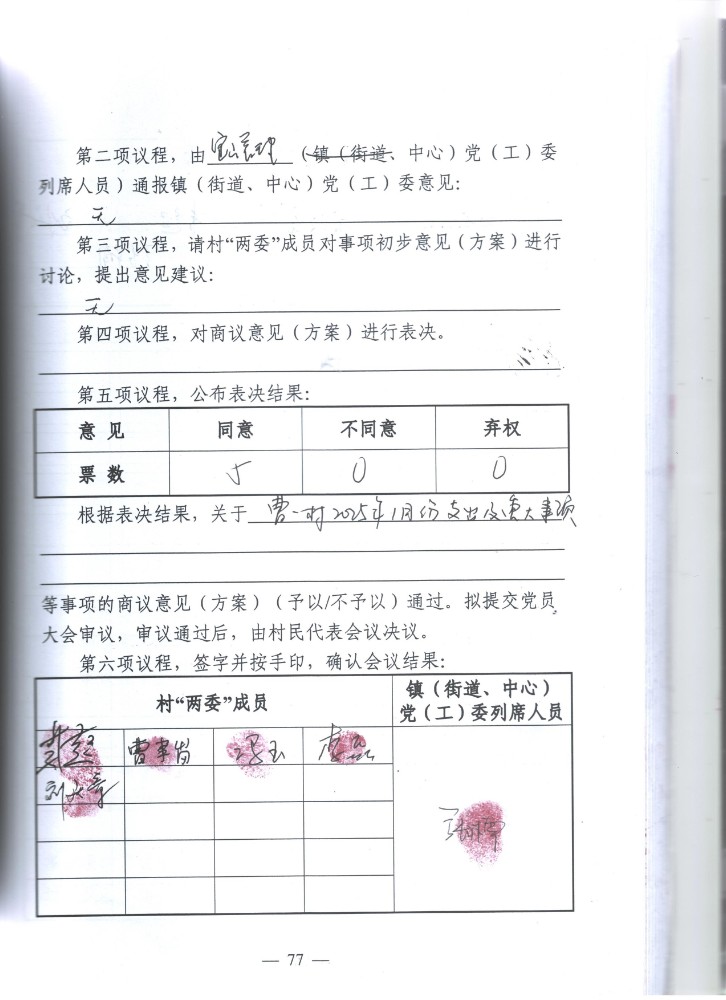 第二项议程，由（镇（街道、中心）党（工）委
列席人员）通报镇（街道、中心）党（工）委意见：
无
第三项议程，请村“两委”成员对事项初步意见（方案）进行
讨论，提出意见建议：
无
第四项议程，对商议意见（方案）进行表决。
第五项议程，公布表决结果：
意 见 同意 不同意 弃权
票 数 5 0 0
根据表决结果，关于 曹一村2025年1月份支出及重大事项
等事项的商议意见（方案）（予以/不予以）通过。拟提交党员
大会审议，审议通过后，由村民代表会议决议。
第六项议程，签字并按手印，确认会议结果：
村“两委”成员 镇（街道、中心）
党（工）委列席人员
— 77 —